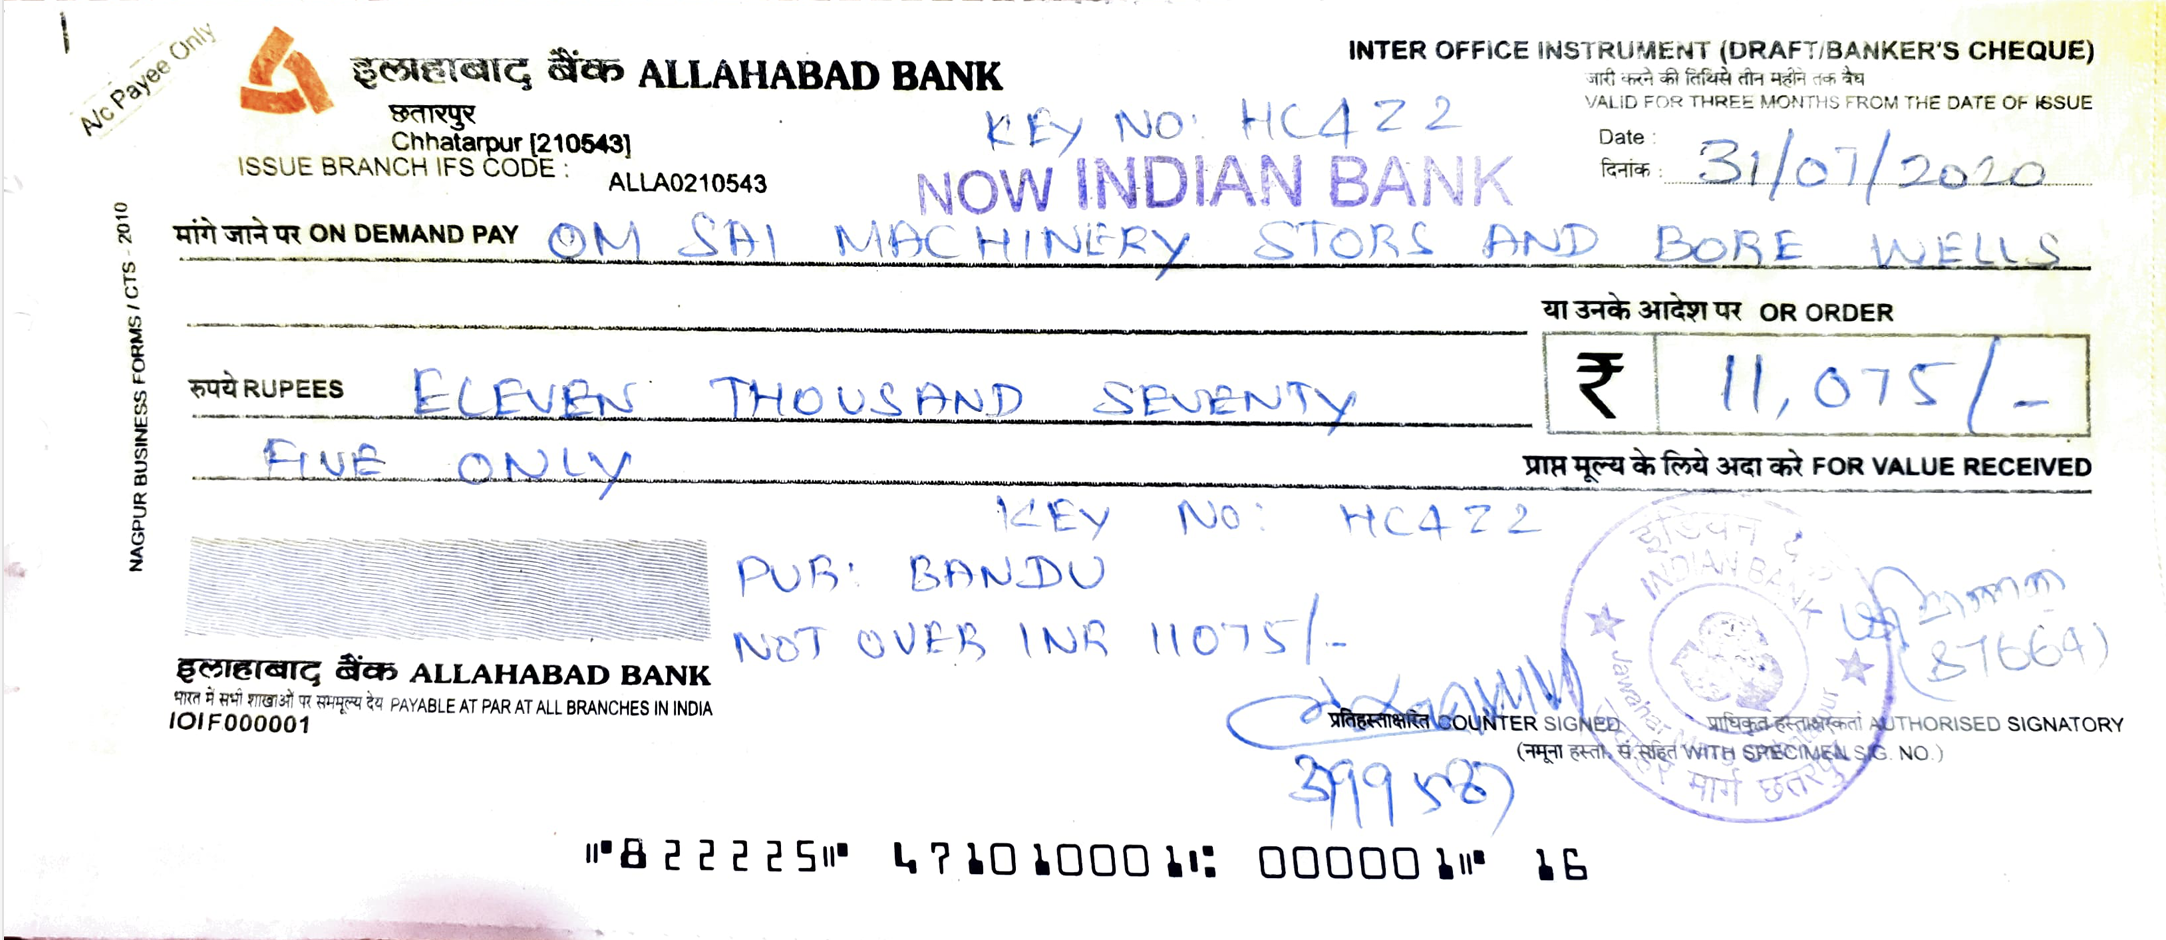 A/c Payee Only
इलाहाबाद बैंक ALLAHABAD BANK
छतारपुर
Chhatarpur [210543]
ISSUE BRANCH IFS CODE : ALLA0210543
INTER OFFICE INSTRUMENT (DRAFT/BANKER'S CHEQUE)
जारी करने की तिथिसे तीन महीने तक वैध
VALID FOR THREE MONTHS FROM THE DATE OF ISSUE
KEY NO: HC4Z2
Date :
दिनांक : 31/07/2020
NOW INDIAN BANK
मांगे जाने पर ON DEMAND PAY OM SAI MACHINERY STORS AND BORE WELLS
या उनके आदेश पर OR ORDER
रुपये RUPEES ELEVEN THOUSAND SEVENTY
₹ 11,075/-
FIVE ONLY
प्राप्त मूल्य के लिये अदा करे FOR VALUE RECEIVED
KEY NO: HC4Z2
PUR: BANDU
NOT OVER INR 11075/-
NAGPUR BUSINESS FORMS / CTS - 2010
इलाहाबाद बैंक ALLAHABAD BANK
भारत में सभी शाखाओं पर सममूल्य देय PAYABLE AT PAR AT ALL BRANCHES IN INDIA
IOIF000001
INDIAN BANK
(87664)
प्रतिहस्ताक्षरित COUNTER SIGNED
प्राधिकृत हस्ताक्षरकर्ता AUTHORISED SIGNATORY
(नमूना हस्ता. सं. सहित WITH SPECIMEN SIG. NO.)
मार्ग छतरपुर
822225 471010001 000001 16